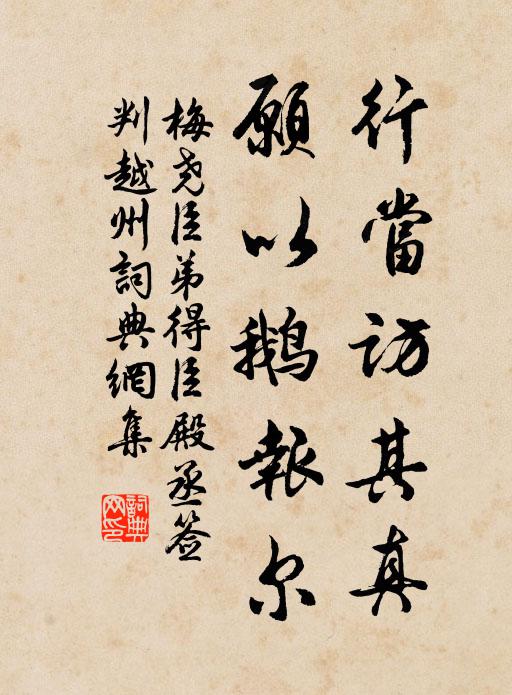 行當訪其真
願以鵝報尔
梅尧臣弟得臣殿丞签
判越州詞典網集
詞典網印